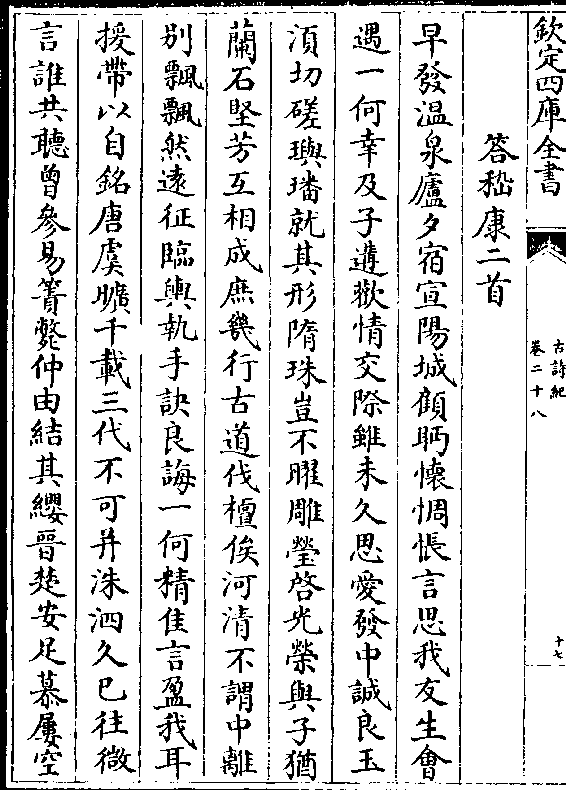 欽定四庫全書
古詩紀
卷二十八
十七
答嵇康二首
早發温泉廬夕宿宣陽城顧眄懷惆悵言思我友生會
遇一何幸及子遘歡情交際雖未久思愛發中誠良玉
須切磋璵璠就其形隋珠豈不曜雕瑩啓光榮與子猶
蘭石堅芳互相成庶幾行古道伐檀俟河清不謂中離
别飄飄然逺征臨輿執手訣良誨一何精佳言盈我耳
援帶以自銘唐虞曠千載三代不可并洙泗久已往微
言誰共聽曾參易簀斃仲由結其纓晉楚安足慕屢空